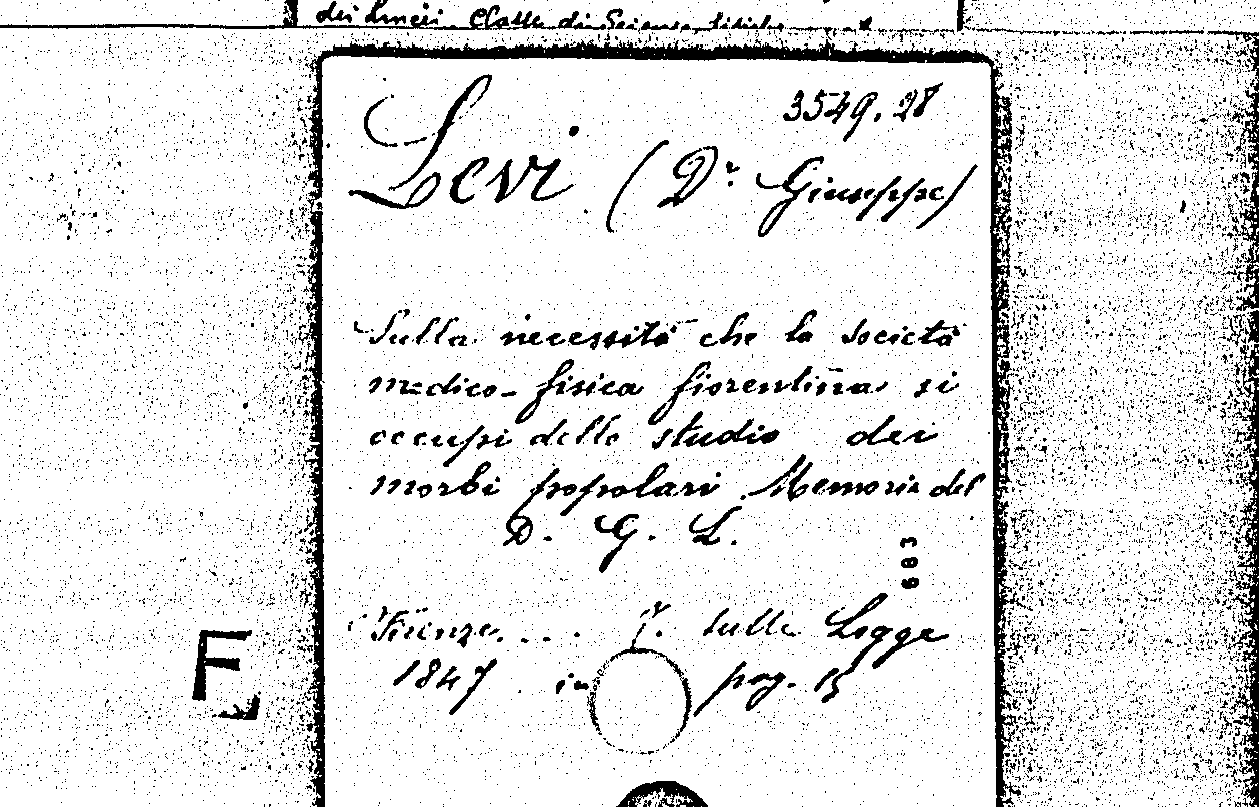 dei Lincei. Classe di Scienze fisiche
3549.28
Levi (Dr. Giuseppe)
Sulla necessità che la società
medico-fisica fiorentina si
occupi dello studio dei
morbi popolari Memoria del
D. G. L.
603
Firenze.... T. sulle Logge
1847 in pag. 15
F